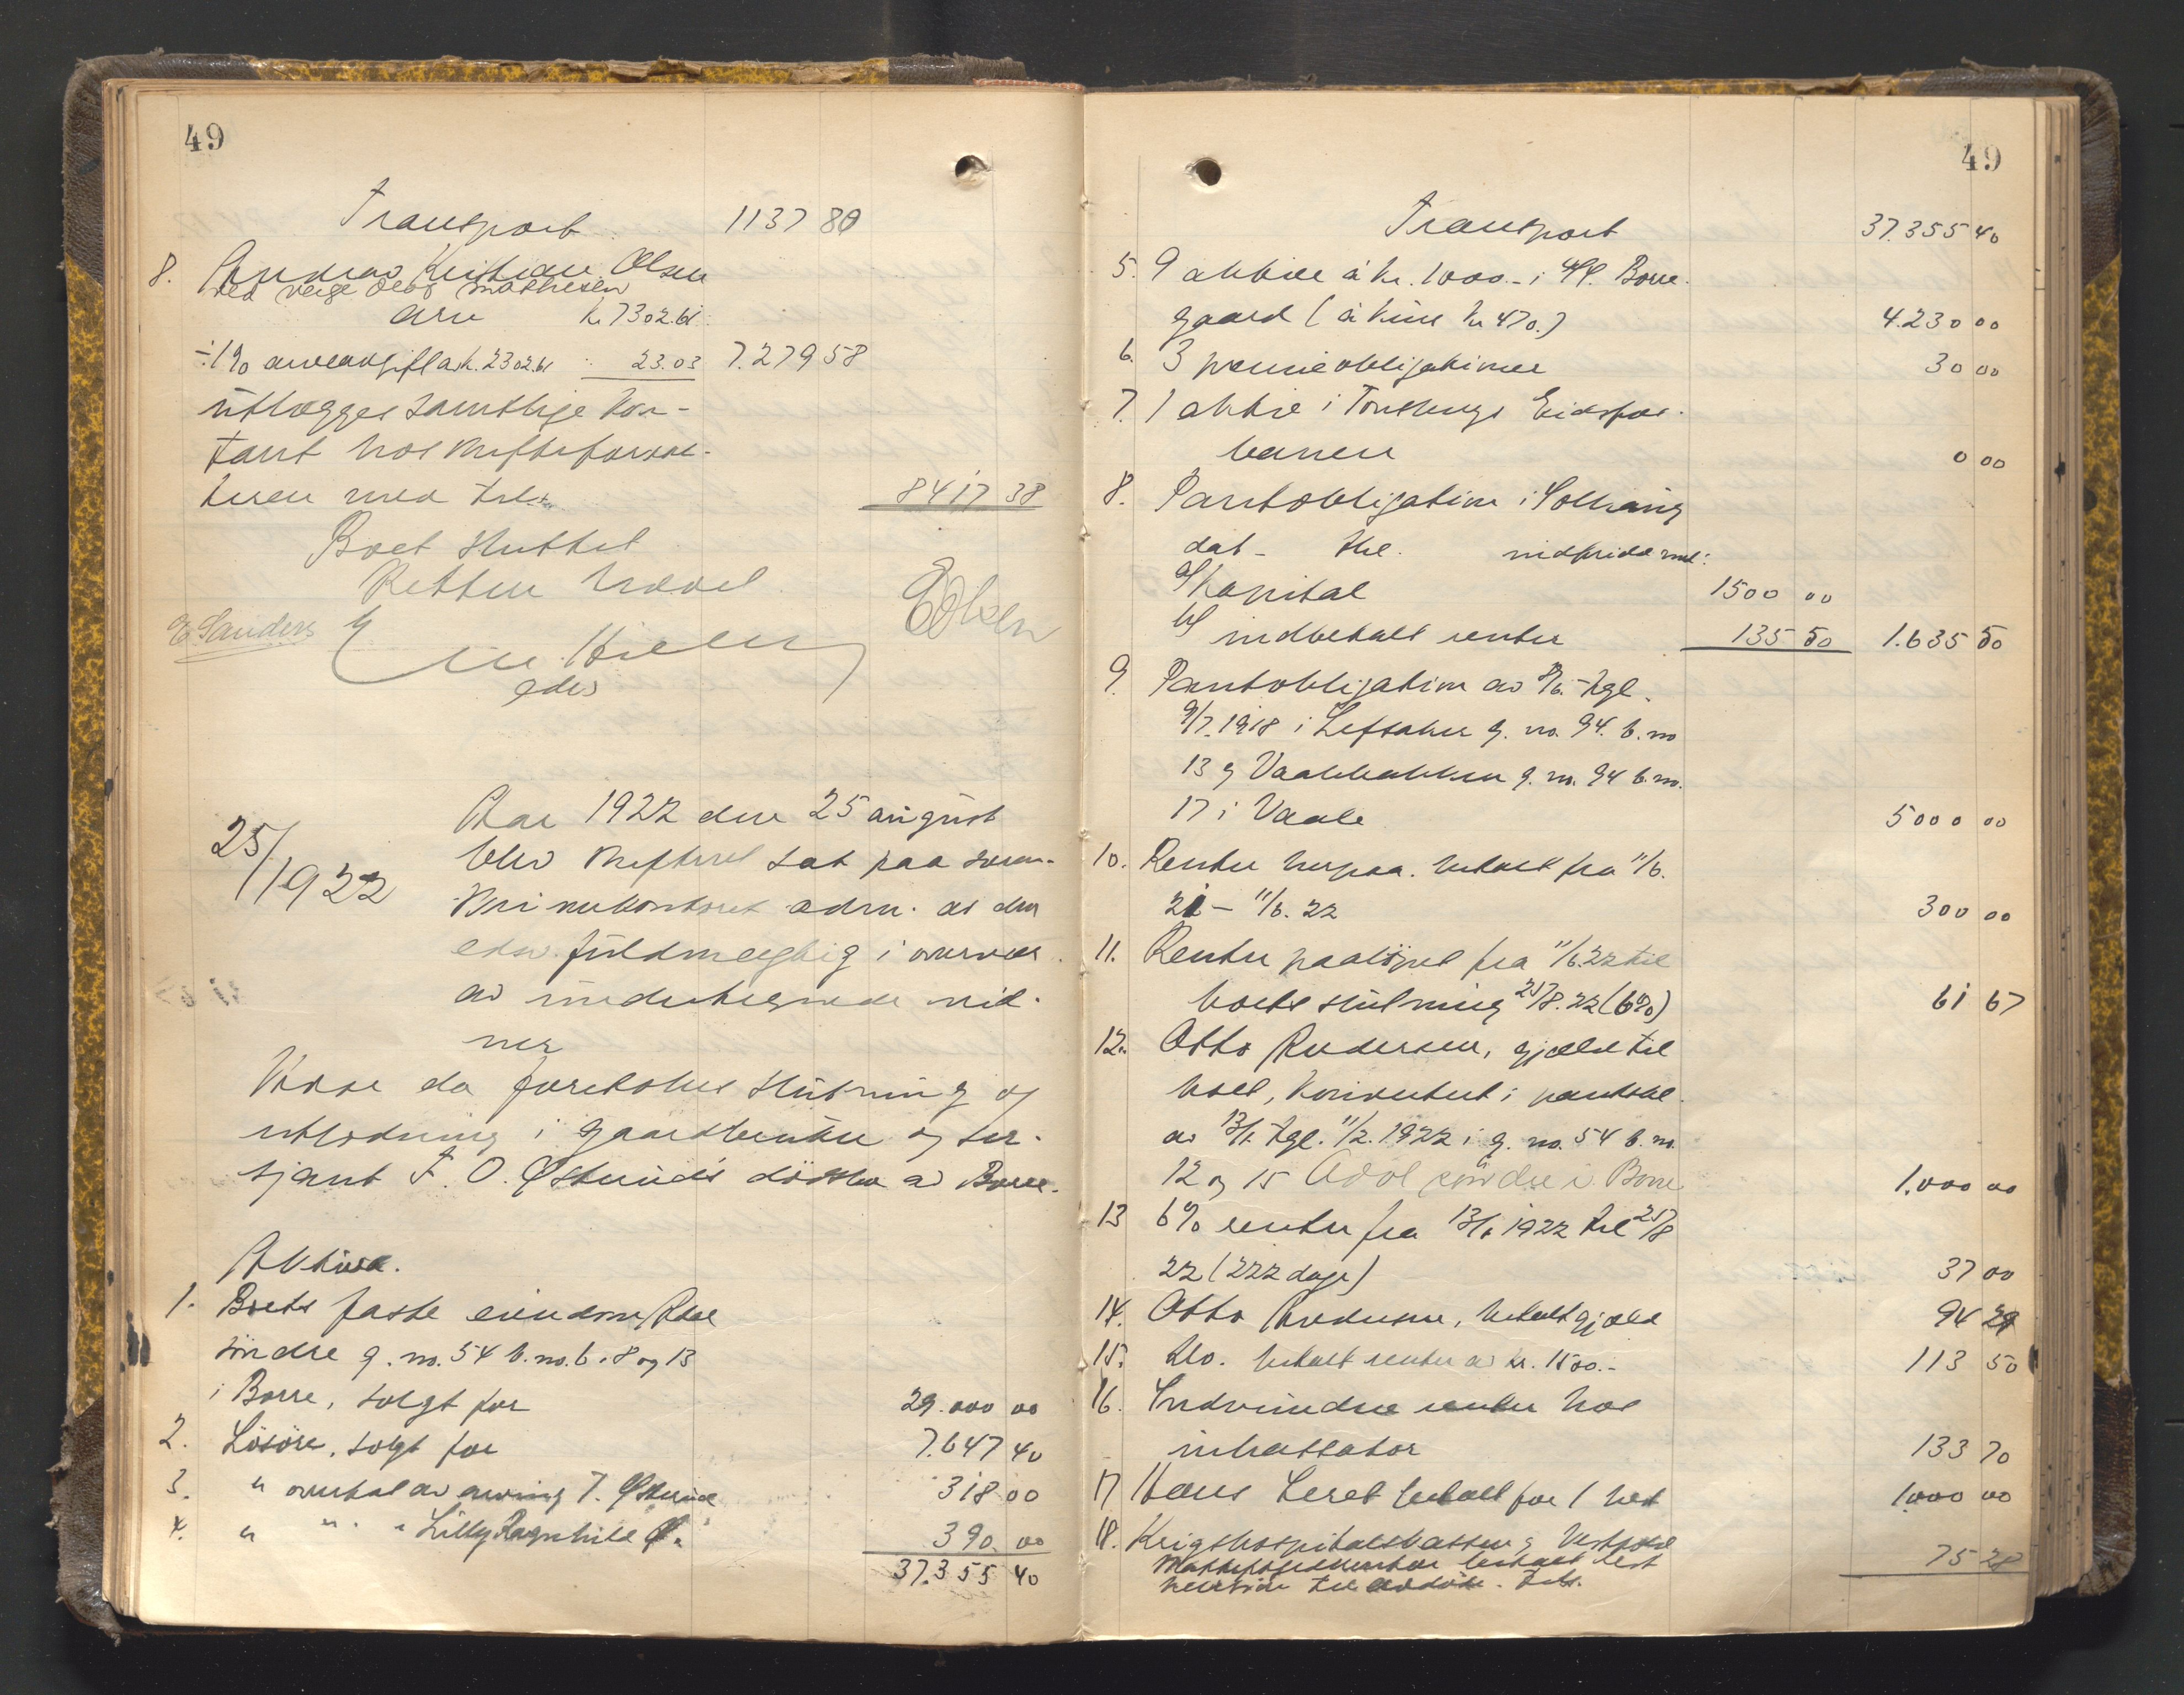 49
Transport 1137 80
8. Andreas Kristian Olsen
ved verge Olaf Mathisen
arv kr 7302.61
÷ 1% arveavgift av k. 2302.61 23.03 7.279 58
utlægges samtlige kon-
tant hos skifteforval-
teren med tils. 8417 38
Boet sluttet
Retten hævet
E Sanders
edv
EOlsen
25/ 1922
Aar 1922 den 25 august
blev skifteret sat paa soren-
skriverkontoret adm. av den
edsv. fuldmægtig i overvær
av undertegnede vid-
ner
Var da foretokes slutning og
utlodning i gaardbruker og ser-
sjant F. O. Østlunds dødsbo av Borre.
Aktiva.
1. Boets faste eiendom Adal
söndre g. no. 54 b. no. 6, 8 og 13
i Borre, solgt for 29.000 00
2. Lösöre, solgt for 7.647 40
3. " overtat av arving T. Østlund 318 00
4. " " " Lilly Ragnhild Ø. 390. 00
37.355 40
49
Transport 37.355 40
5. 9 aktier á kr. 1000.- i A/S. Borre-
gaard (á kurs kr 470.) 4.230 00
6. 3 præmieobligationer 30 00
7. 1 aktie i Tønsberg Eidsfos-
banen 0 00
8. Pantobligation i Solhaug
dat - thl. indfridd med:
a) Kapital 1500 00
b) indbetalt renter 135 50 1.635 50
9. Pantobligation av 11/6 - tgl.
9/7. 1918 i Leftaker g. no. 94. b. no
13 og Vaalebakken g. no. 94 b. no.
17 i Vaale 5000 00
10. Renter herpaa betalt fra 11/6.
21 - 11/6. 22 300 00
11. Renter paalöpet fra 11/6.22 til
boets slutning 25/8. 22 (6%) 61 67
12. Otto Andersen, gjæld til
boet, konvertert i pantobl.
av 13/1. tgl. 11/2. 1922 i g. no. 54 b. no.
12 og 15 Adal söndre i Borre 1.000 00
13 6% renter fra 13/1 1922 til 25/8
22 (222 dage) 37 00
14. Otto Andersen, betalt gjæld 94 29
15. Do. betalt renter av kr. 1500.- 113 50
16. Indvundne renter hos
inkassator 133 70
17 Hans Leret betalt for 1 hest 1.000 00
18. Krigshospitalskassen, Vestfold
betalt rest
pension til avdöde. Tils. 75 28